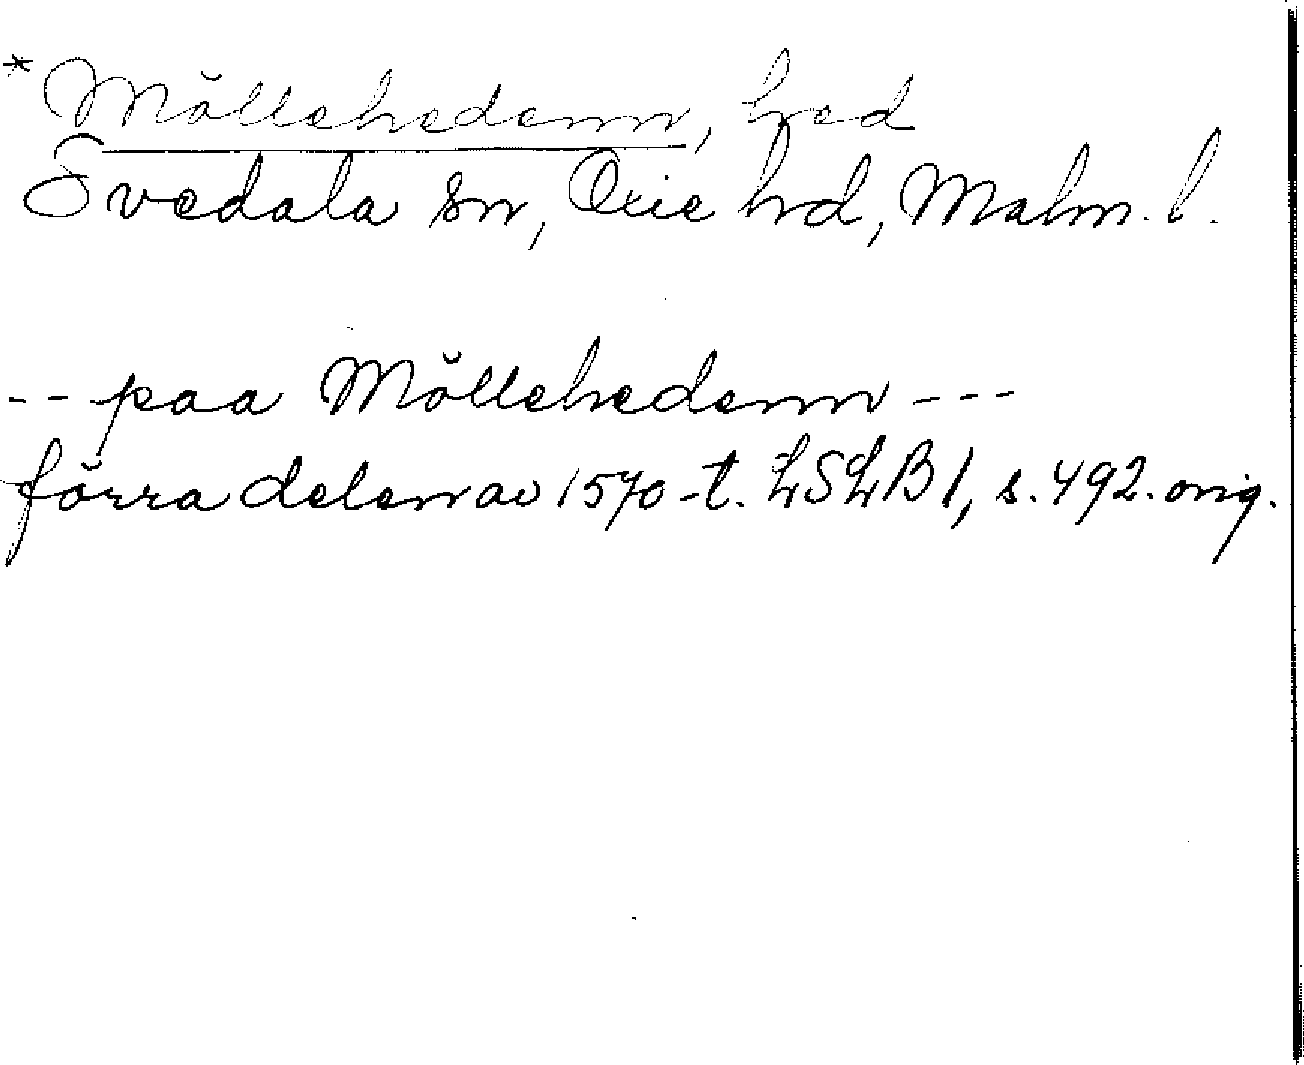 *Möllehedenn, hed
Svedala sn, Oxie hd, Malm. l.
-- paa Möllehedenn ---
förra delen av 1570-t. LSLB 1, s. 492. orig.